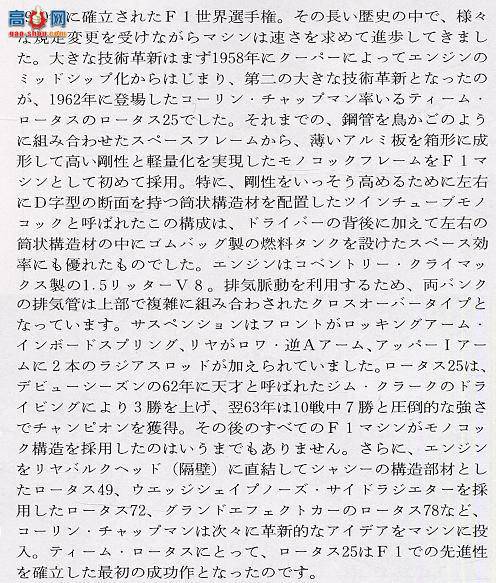 高高
に確立されたＦ１世界選手権。その長い歴史の中で、様々
な規定変更を受けながらマシンは速さを求めて進歩してきまし
た。大きな技術革新はまず1958年にクーパーによってエンジンの
ミッドシップ化からはじまり、第二の大きな技術革新となったの
が、1962年に登場したコーリン・チャップマン率いるティーム・
ロータスのロータス25でした。それまでの、鋼管を鳥かごのよう
に組み合わせたスペースフレームから、薄いアルミ板を箱形に成
形して高い剛性と軽量化を実現したモノコックフレームをＦ１マ
シンとして初めて採用。特に、剛性をいっそう高めるために左右
にＤ字型の断面を持つ筒状構造材を配置したツインチューブモノ
コックと呼ばれたこの構成は、ドライバーの背後に加えて左右の
筒状構造材の中にゴムバッグ製の燃料タンクを設けたスペース効
率にも優れたものでした。エンジンはコベントリー・クライマッ
クス製の1.5リッターＶ８。排気脈動を利用するため、両バンク
の排気管は上部で複雑に組み合わされたクロスオーバータイプと
なっています。サスペンションはフロントがロッキングアーム・
インボードスプリング、リヤがロワ・逆Ａアーム、アッパーＩアー
ムに２本のラジアスロッドが加えられていました。ロータス25は、
デビューシーズンの62年に天才と呼ばれたジム・クラークのドラ
イビングにより３勝を上げ、翌63年は10戦中７勝と圧倒的な強さ
でチャンピオンを獲得。その後のすべてのＦ１マシンがモノコッ
ク構造を採用したのはいうまでもありません。さらに、エンジン
をリヤバルクヘッド（隔壁）に直結してシャシーの構造部材とし
たロータス49、ウエッジシェイプノーズ・サイドラジエターを採
用したロータス72、グランドエフェクトカーのロータス78など、
コーリン・チャップマンは次々に革新的なアイデアをマシンに投
入。ティーム・ロータスにとって、ロータス25はＦ１での先進性
を確立した最初の成功作となったのです。